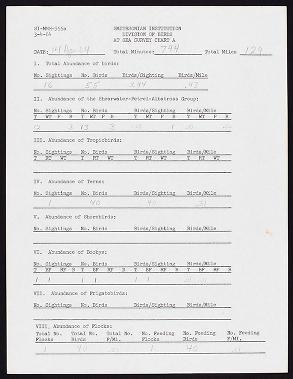 SI-MNH-555a
3-4-64
SMITHSONIAN INSTITUTION
DIVISION OF BIRDS
AT SEA SURVEY CHART A
DATE: Total Minutes: 744 Total Miles 129
I. Total Abundance of birds:
No. Sightings No. Birds Birds/Sighting Birds/Mile
16 55 3.44 .43
II. Abundance of the Shearwater-Petrel-Albatross Group:
No. Sightings No. Birds Birds/Sighting Birds/Mile
T WT P B T WT P B T WT P B T WT P B
12 13
III. Abundance of Tropicbirds:
No. Sightings No. Birds Birds/Sighting Birds/Mile
T RT WT T RT WT T RT WT T RT WT
IV. Abundance of Terns:
No. Sightings No. Birds Birds/Sighting Birds/Mile
1 40 40 .31
V. Abundance of Shorebirds:
No. Sightings No. Birds Birds/Sighting Birds/Mile
VI. Abundance of Boobys:
No. Sightings No. Birds Birds/Sighting Birds/Mile
T BF RF B T BF RF B T BF RF B T BF RF B
1 1 1 1 1 1
VII. Abundance of Frigatebirds:
No. Sightings No. Birds Birds/Sighting Birds/Mile
VIII. Abundance of Flocks:
Total No. Total No. Total No. No. Feeding No. Feeding No. Feeding
Flocks Birds F/Mi. Flocks Birds F/Mi.
1 40 1 40